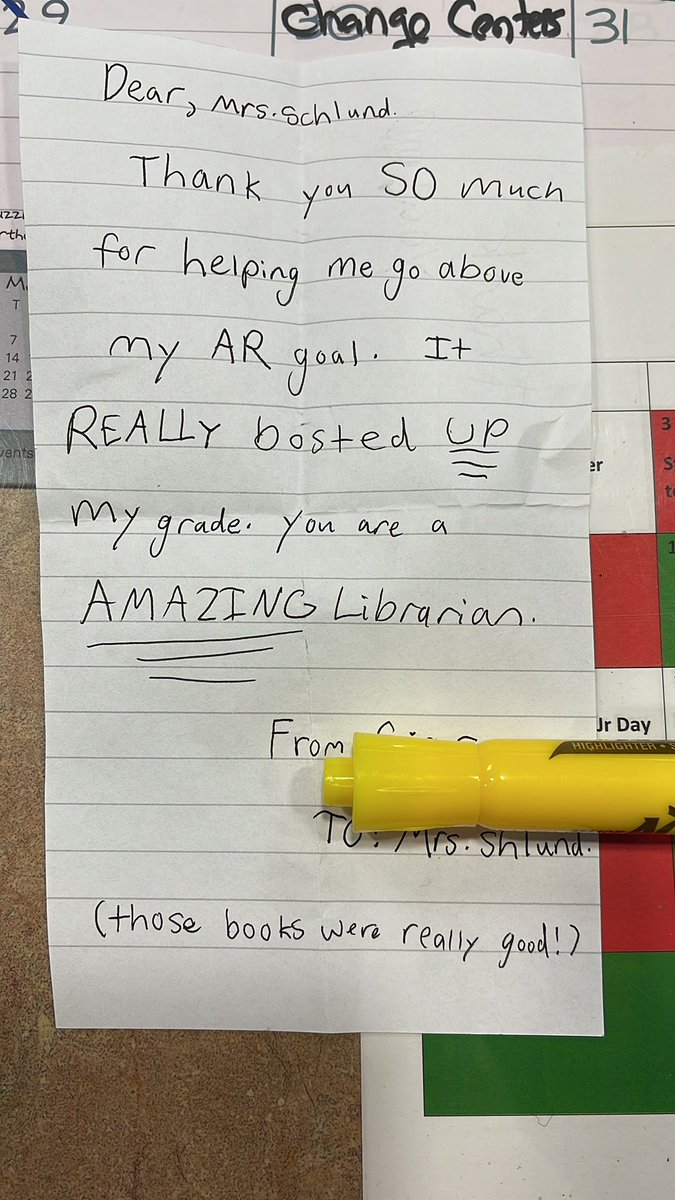 29
Change Centers
31
Dear, Mrs. Schlund.
Thank you SO much
for helping me go above
my AR goal. It
REALLY bosted UP
my grade. you are a
AMAZING Librarian.
From
TO: Mrs. Shlund.
(those books were really good!)
T
7
14
21 2
28 2
er
3
Jr Day
HIGHLIGHTER